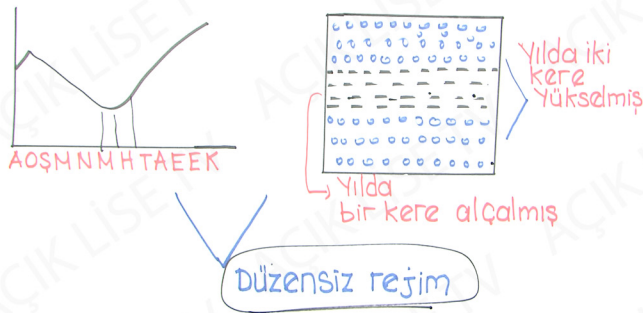 AOŞMNMHTAEEK
Yılda iki
kere
Yükselmiş
Yılda
bir kere alçalmış
Düzensiz rejim
AÇIK LİSE TV